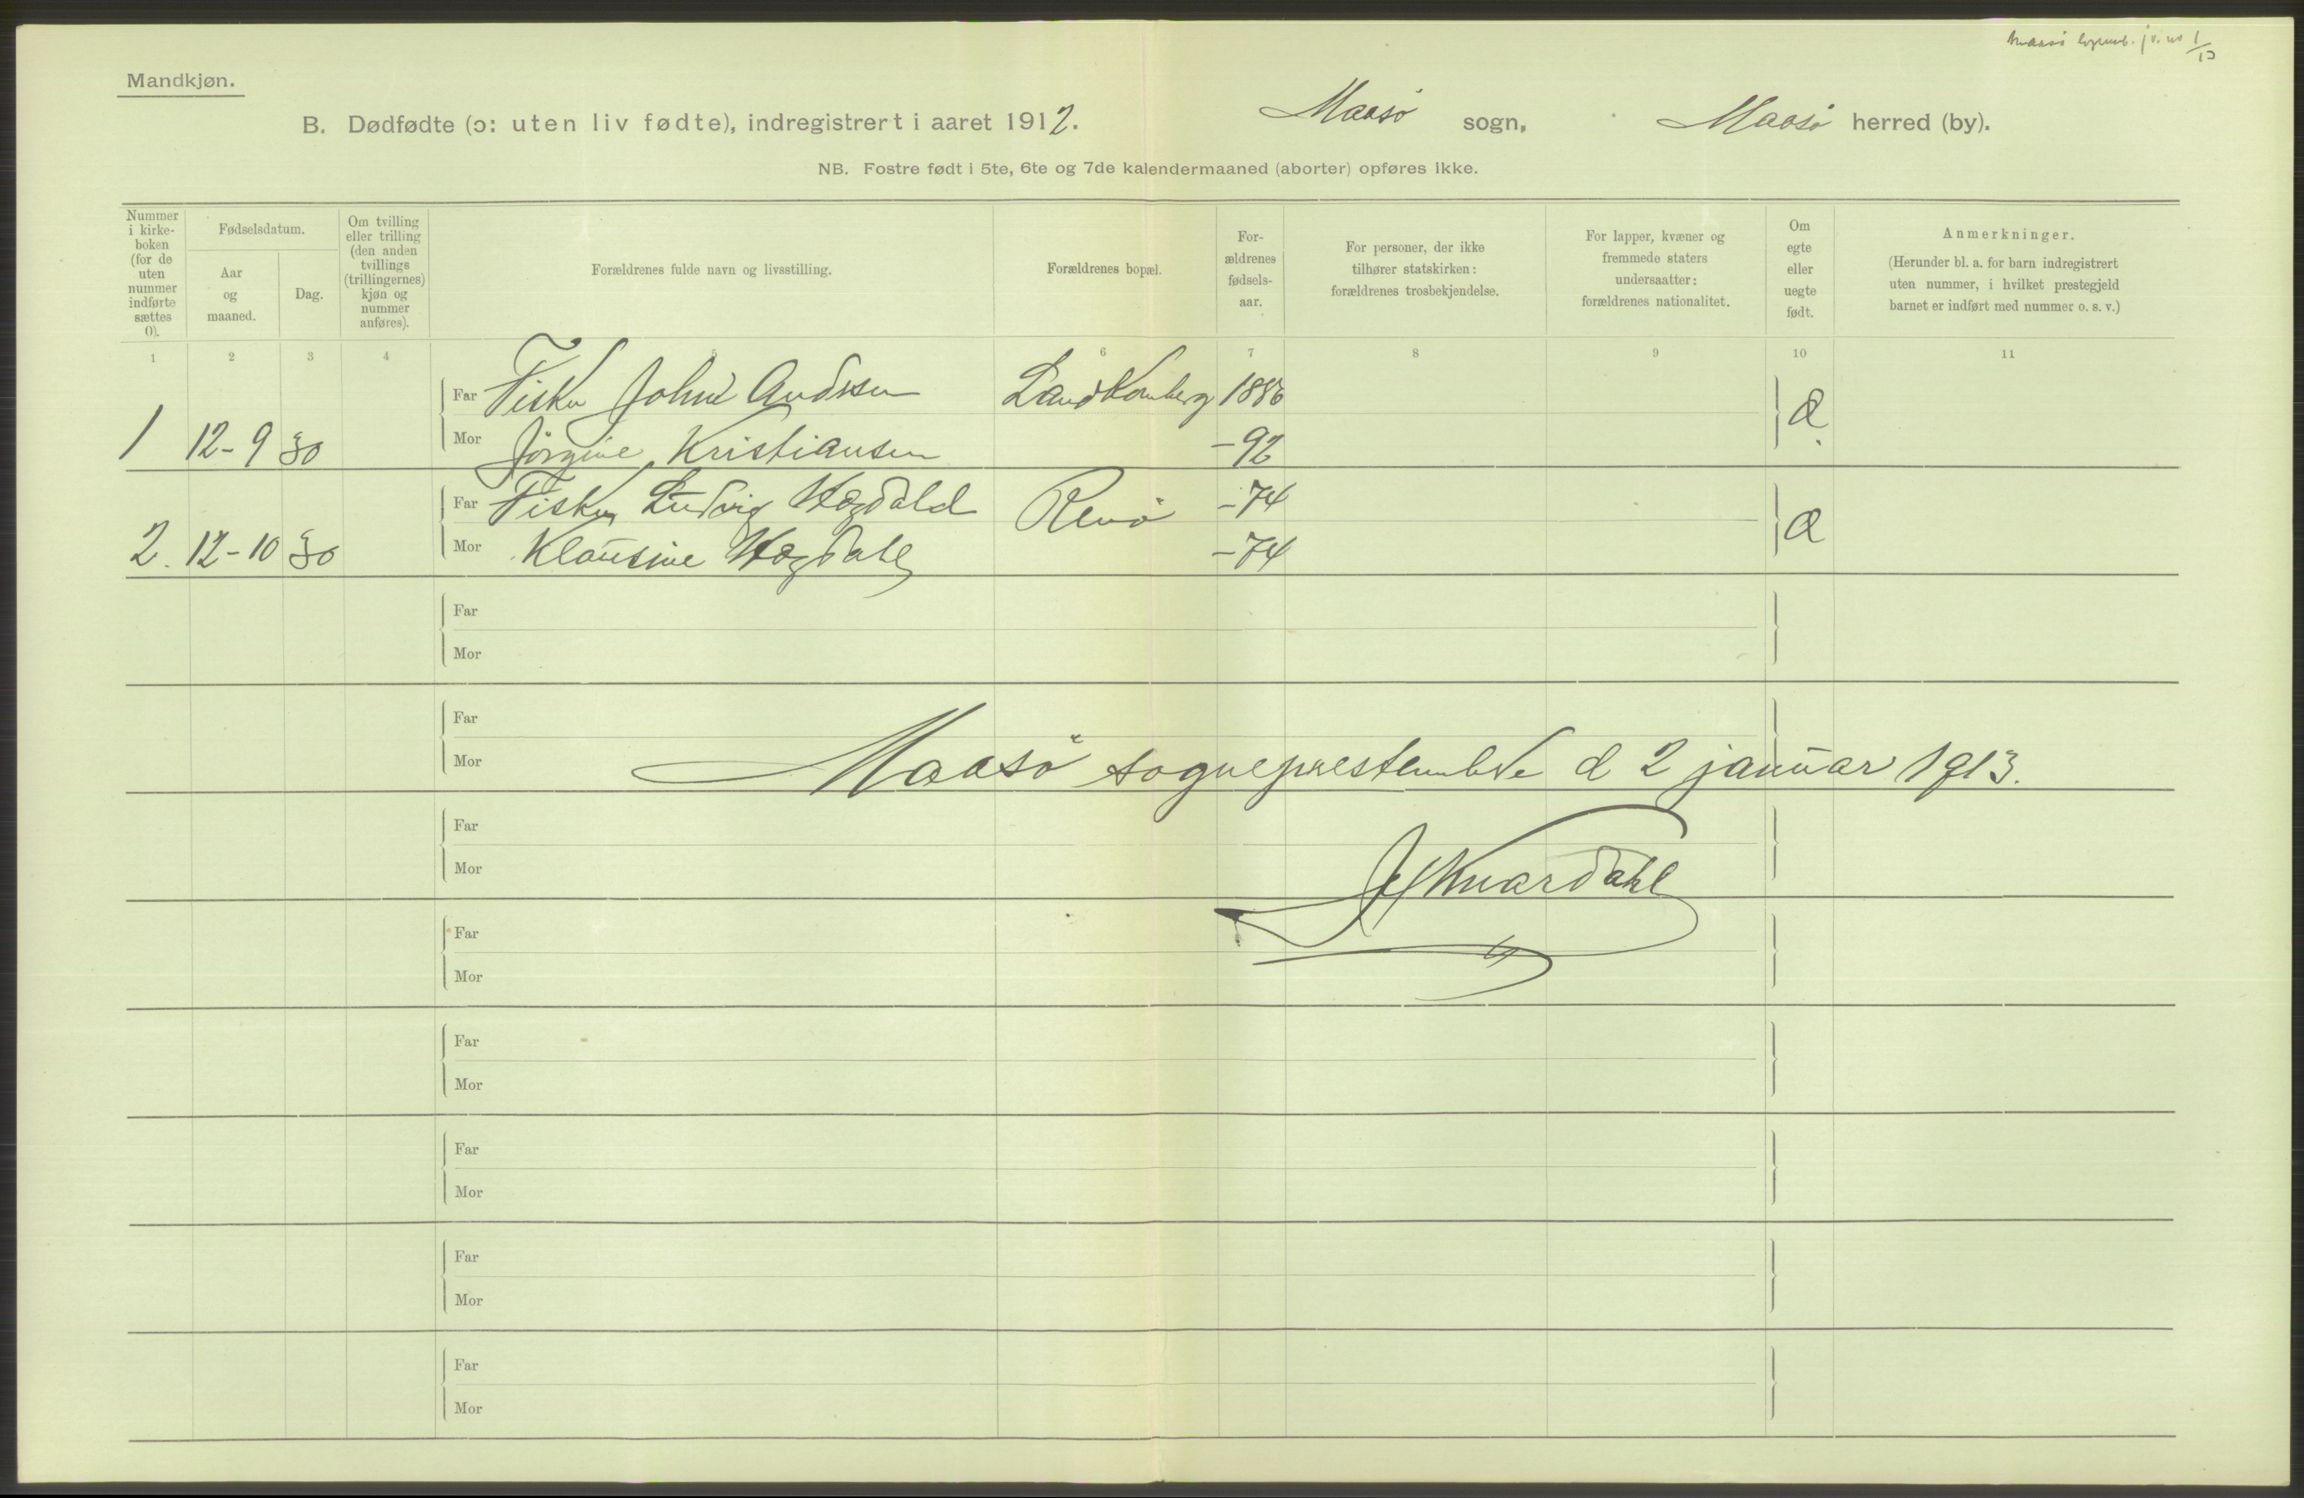 Mandkjøn.
B. Dødfødte (ɔ: uten liv fødte), indregistrert i aaret 1912. Maasø sogn, Maasø herred (by).
NB. Fostre født i 5te, 6te og 7de kalendermaaned (aborter) opføres ikke.
Nummer i kirke- boken (for de uten nummer indførte sættes 0).
Fødselsdatum.
Aar og maaned.
Dag.
Om tvilling eller trilling (den anden tvillings (trillingernes) kjøn og nummer anføres).
Forældrenes fulde navn og livsstilling.
Forældrenes bopæl.
For- ældrenes fødsels- aar.
For personer, der ikke tilhører statskirken: forældrenes trosbekjendelse.
For lapper, kvæner og fremmede staters undersaatter: forældrenes nationalitet.
Om egte eller uegte født.
Anmerkninger.
(Herunder bl. a. for barn indregistrert uten nummer, i hvilket prestegjeld barnet er indført med nummer o. s. v.)
1 2 3 4 5 6 7 8 9 10 11
Far Fisker Johne Andersen 1886
1 12-9 30 Mor Jørgine Kristiansen -92
Far Fisker Ludvig Hagdald Renø -74
2. 12-10 30 Mor Klausine Hagdahl -74
Far
Mor
Far
Mor Maasø sogneprestembede d 2 januar 1913.
Far
Mor Knardahl
Far
Mor
Far
Mor
Far
Mor
Far
Mor
Far
Mor